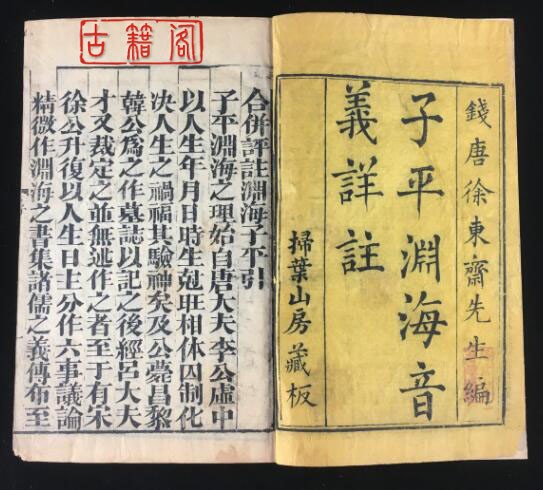 錢唐徐東齋先生編
子平淵海音
義詳註
掃葉山房藏板
合併評註淵海子平引
子平淵海之理始自唐大夫李公虛中
以人生年月日時生尅旺相休囚制化
决人生之禍福其驗神矣及公薨昌黎
韓公爲之作墓誌以記之後經呂大夫
才又裁定之並無述作之者至于有宋
徐公升復以人生日主分作六事議論
精微作淵海之書集諸儒之義傳布至
古籍阁